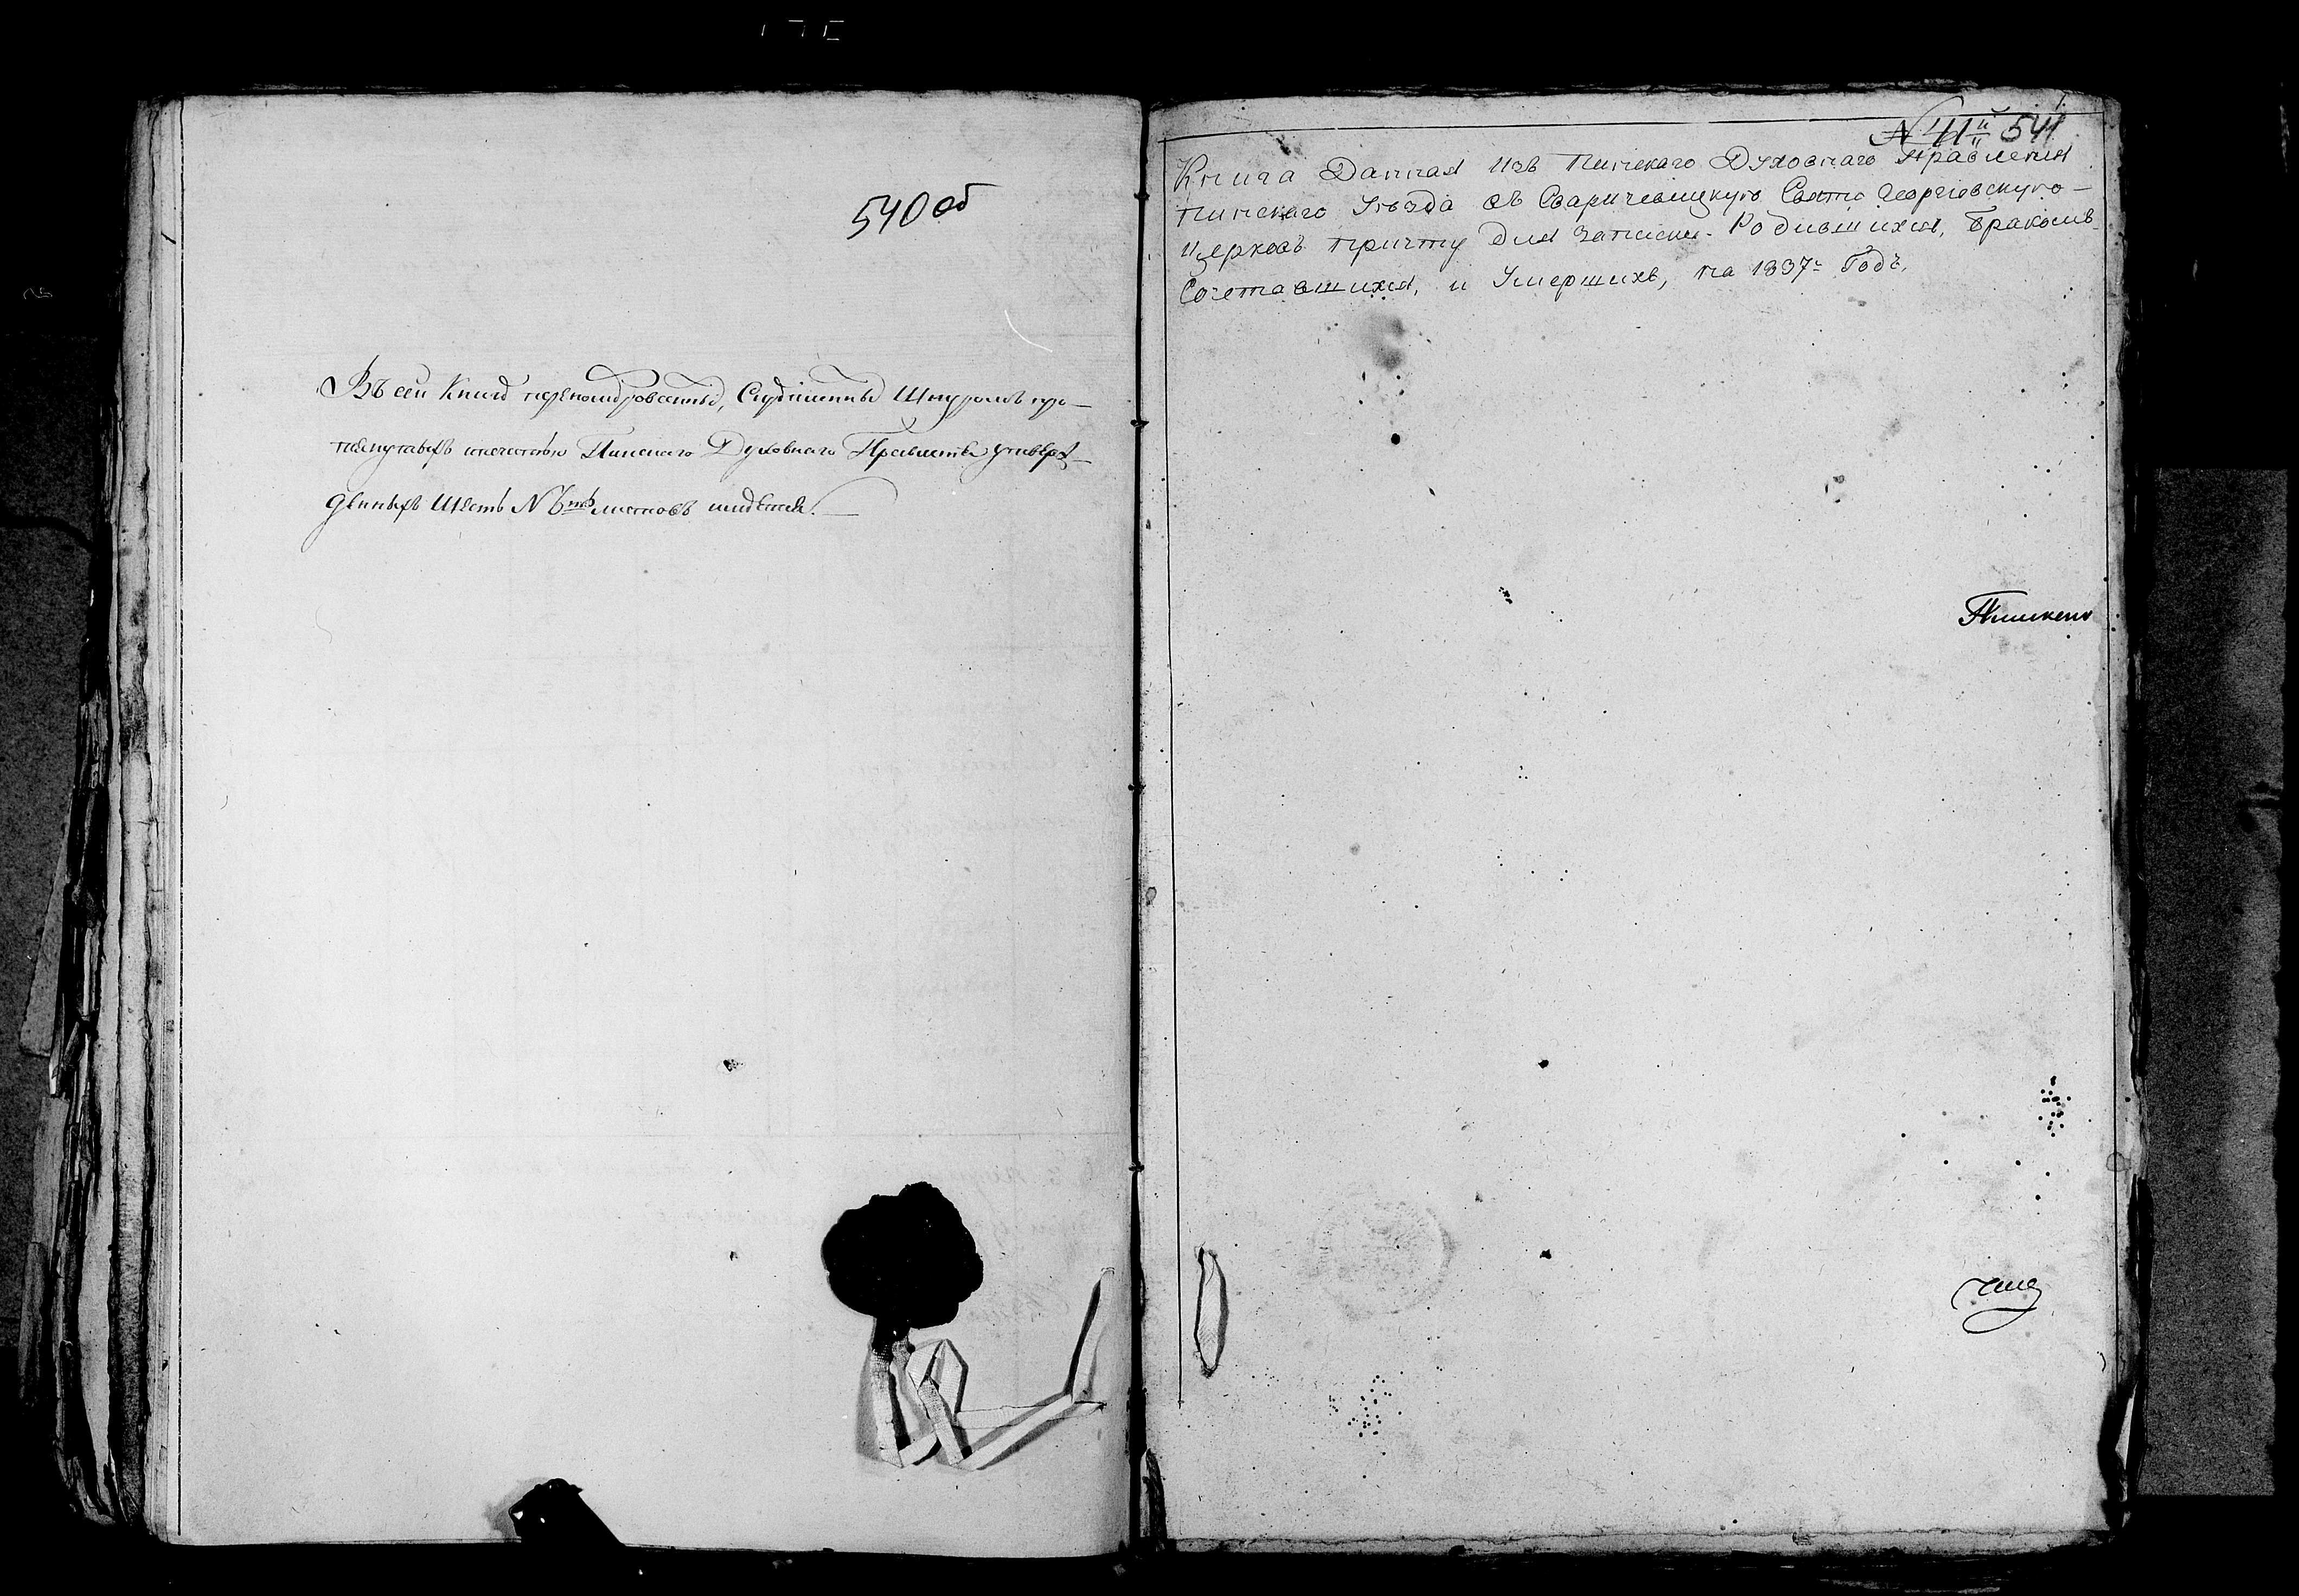 540 об
Въ сей Книгѣ перенумерованныхъ, Скрѣпленныхъ Шнуромъ про-
тянутыхъ и печатью Пинскаго Духовнаго Правленія утверж-
денныхъ Шесть N 6ть листовъ имѣется.
N 41й 541
Книга Данная изъ Пинскаго Духовнаго Правленія
Пинскаго Уѣзда въ Сваричевицкую Свято Георгіевскую
Церковь причту для записки Родившихся, Бракомъ
Сочетавшихся, и Умершихъ, на 1837й Годъ.